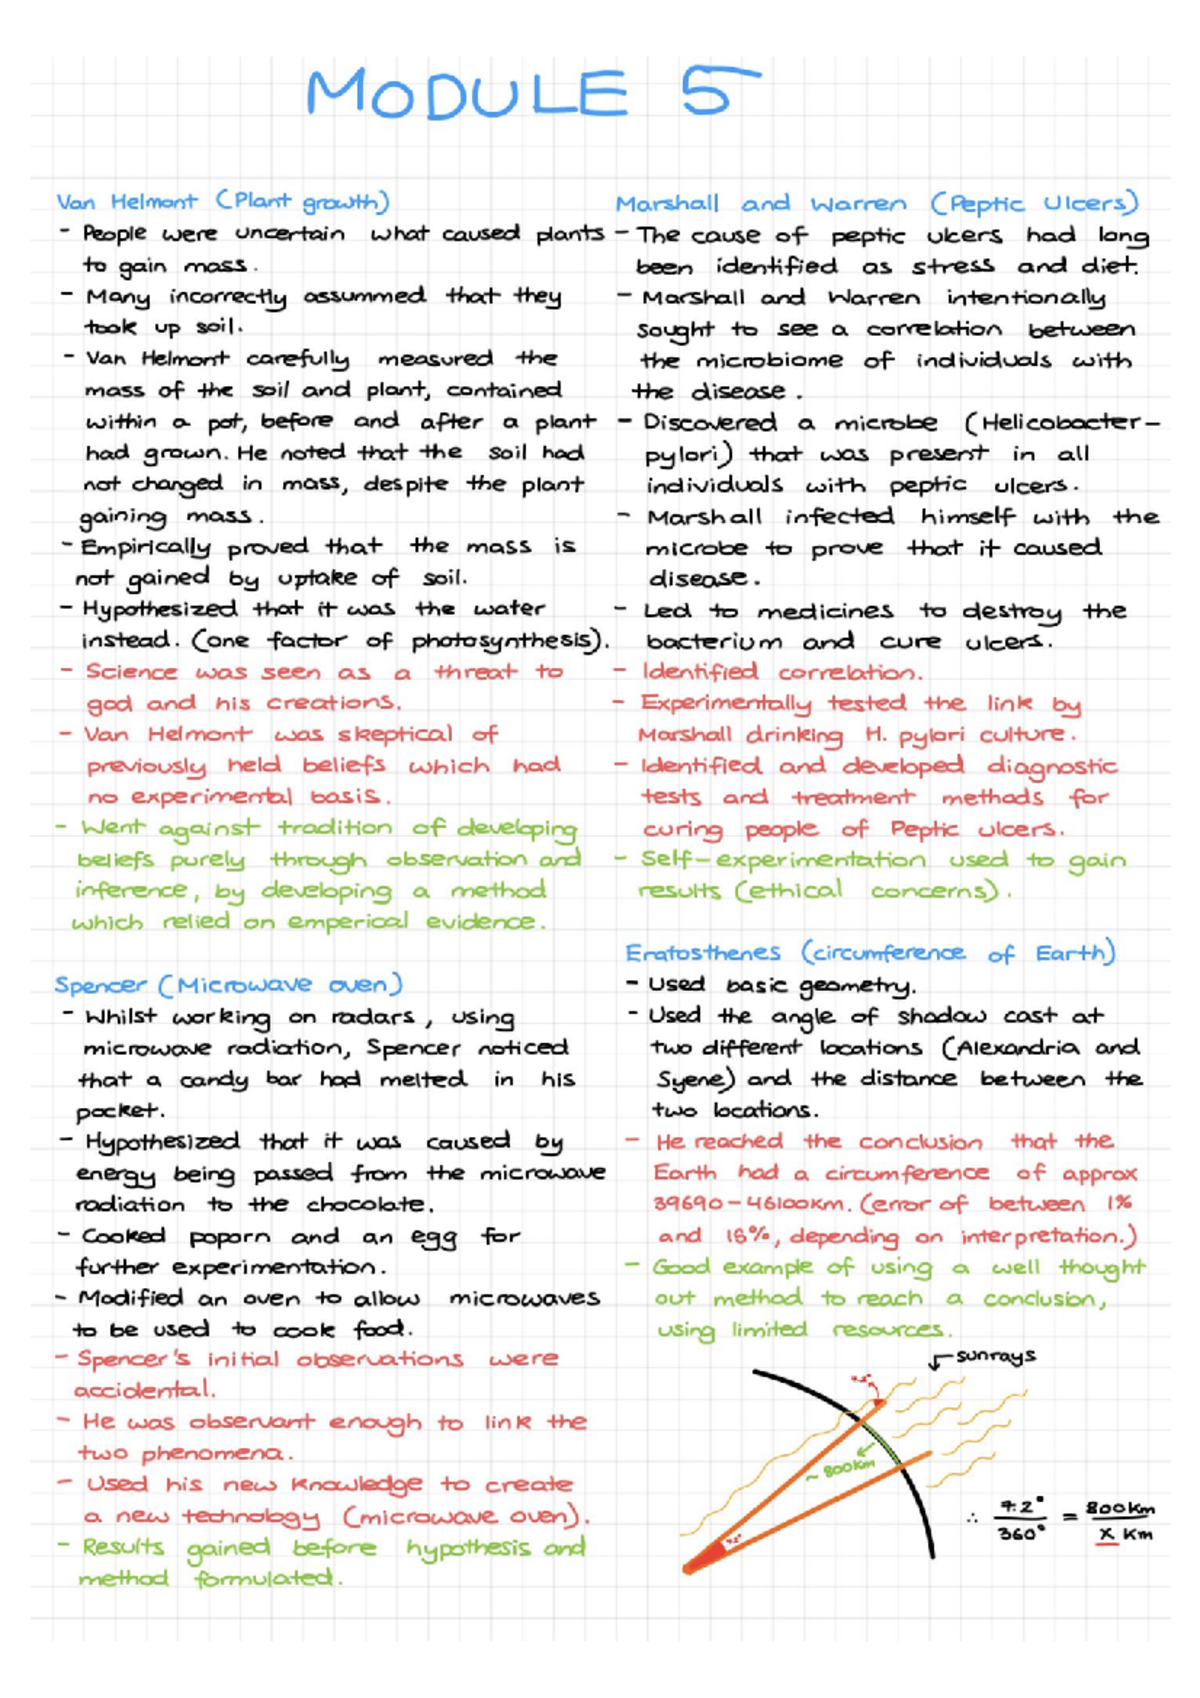 MODULE 5
Van Helmont (Plant growth)
- People were uncertain what caused plants
to gain mass.
- Many incorrectly assummed that they
took up soil.
- Van Helmont carefully measured the
mass of the soil and plant, contained
within a pot, before and after a plant
had grown. He noted that the soil had
not changed in mass, despite the plant
gaining mass.
- Empirically proved that the mass is
not gained by uptake of soil.
- Hypothesized that it was the water
instead. (one factor of photosynthesis).
- Science was seen as a threat to
god and his creations.
- Van Helmont was skeptical of
previously held beliefs which had
no experimental basis.
- Went against tradition of developing
beliefs purely through observation and
inference, by developing a method
which relied on emperical evidence.
Spencer (Microwave oven)
- Whilst working on radars, using
microwave radiation, Spencer noticed
that a candy bar had melted in his
pocket.
- Hypothesized that it was caused by
energy being passed from the microwave
radiation to the chocolate.
- Cooked poporn and an egg for
further experimentation.
- Modified an oven to allow microwaves
to be used to cook food.
- Spencer's initial observations were
accidental.
- He was observant enough to link the
two phenomena.
- Used his new knowledge to create
a new technology (microwave oven).
- Results gained before hypothesis and
method formulated.
Marshall and Warren (Peptic Ulcers)
- The cause of peptic ulcers had long
been identified as stress and diet.
- Marshall and Warren intentionally
sought to see a correlation between
the microbiome of individuals with
the disease.
- Discovered a microbe (Helicobacter-
pylori) that was present in all
individuals with peptic ulcers.
- Marshall infected himself with the
microbe to prove that it caused
disease.
- Led to medicines to destroy the
bacterium and cure ulcers.
- Identified correlation.
- Experimentally tested the link by
Marshall drinking H. pylori culture.
- Identified and developed diagnostic
tests and treatment methods for
curing people of Peptic ulcers.
- Self-experimentation used to gain
results (ethical concerns).
Eratosthenes (circumference of Earth)
- Used basic geometry.
- Used the angle of shadow cast at
two different locations (Alexandria and
Syene) and the distance between the
two locations.
- He reached the conclusion that the
Earth had a circumference of approx
39690-46100km. (error of between 1%
and 16%, depending on interpretation.)
- Good example of using a well thought
out method to reach a conclusion,
using limited resources.
sunrays
7.2°
~ 800km
7.2°
∴ 7.2°/360° = 800km/x km